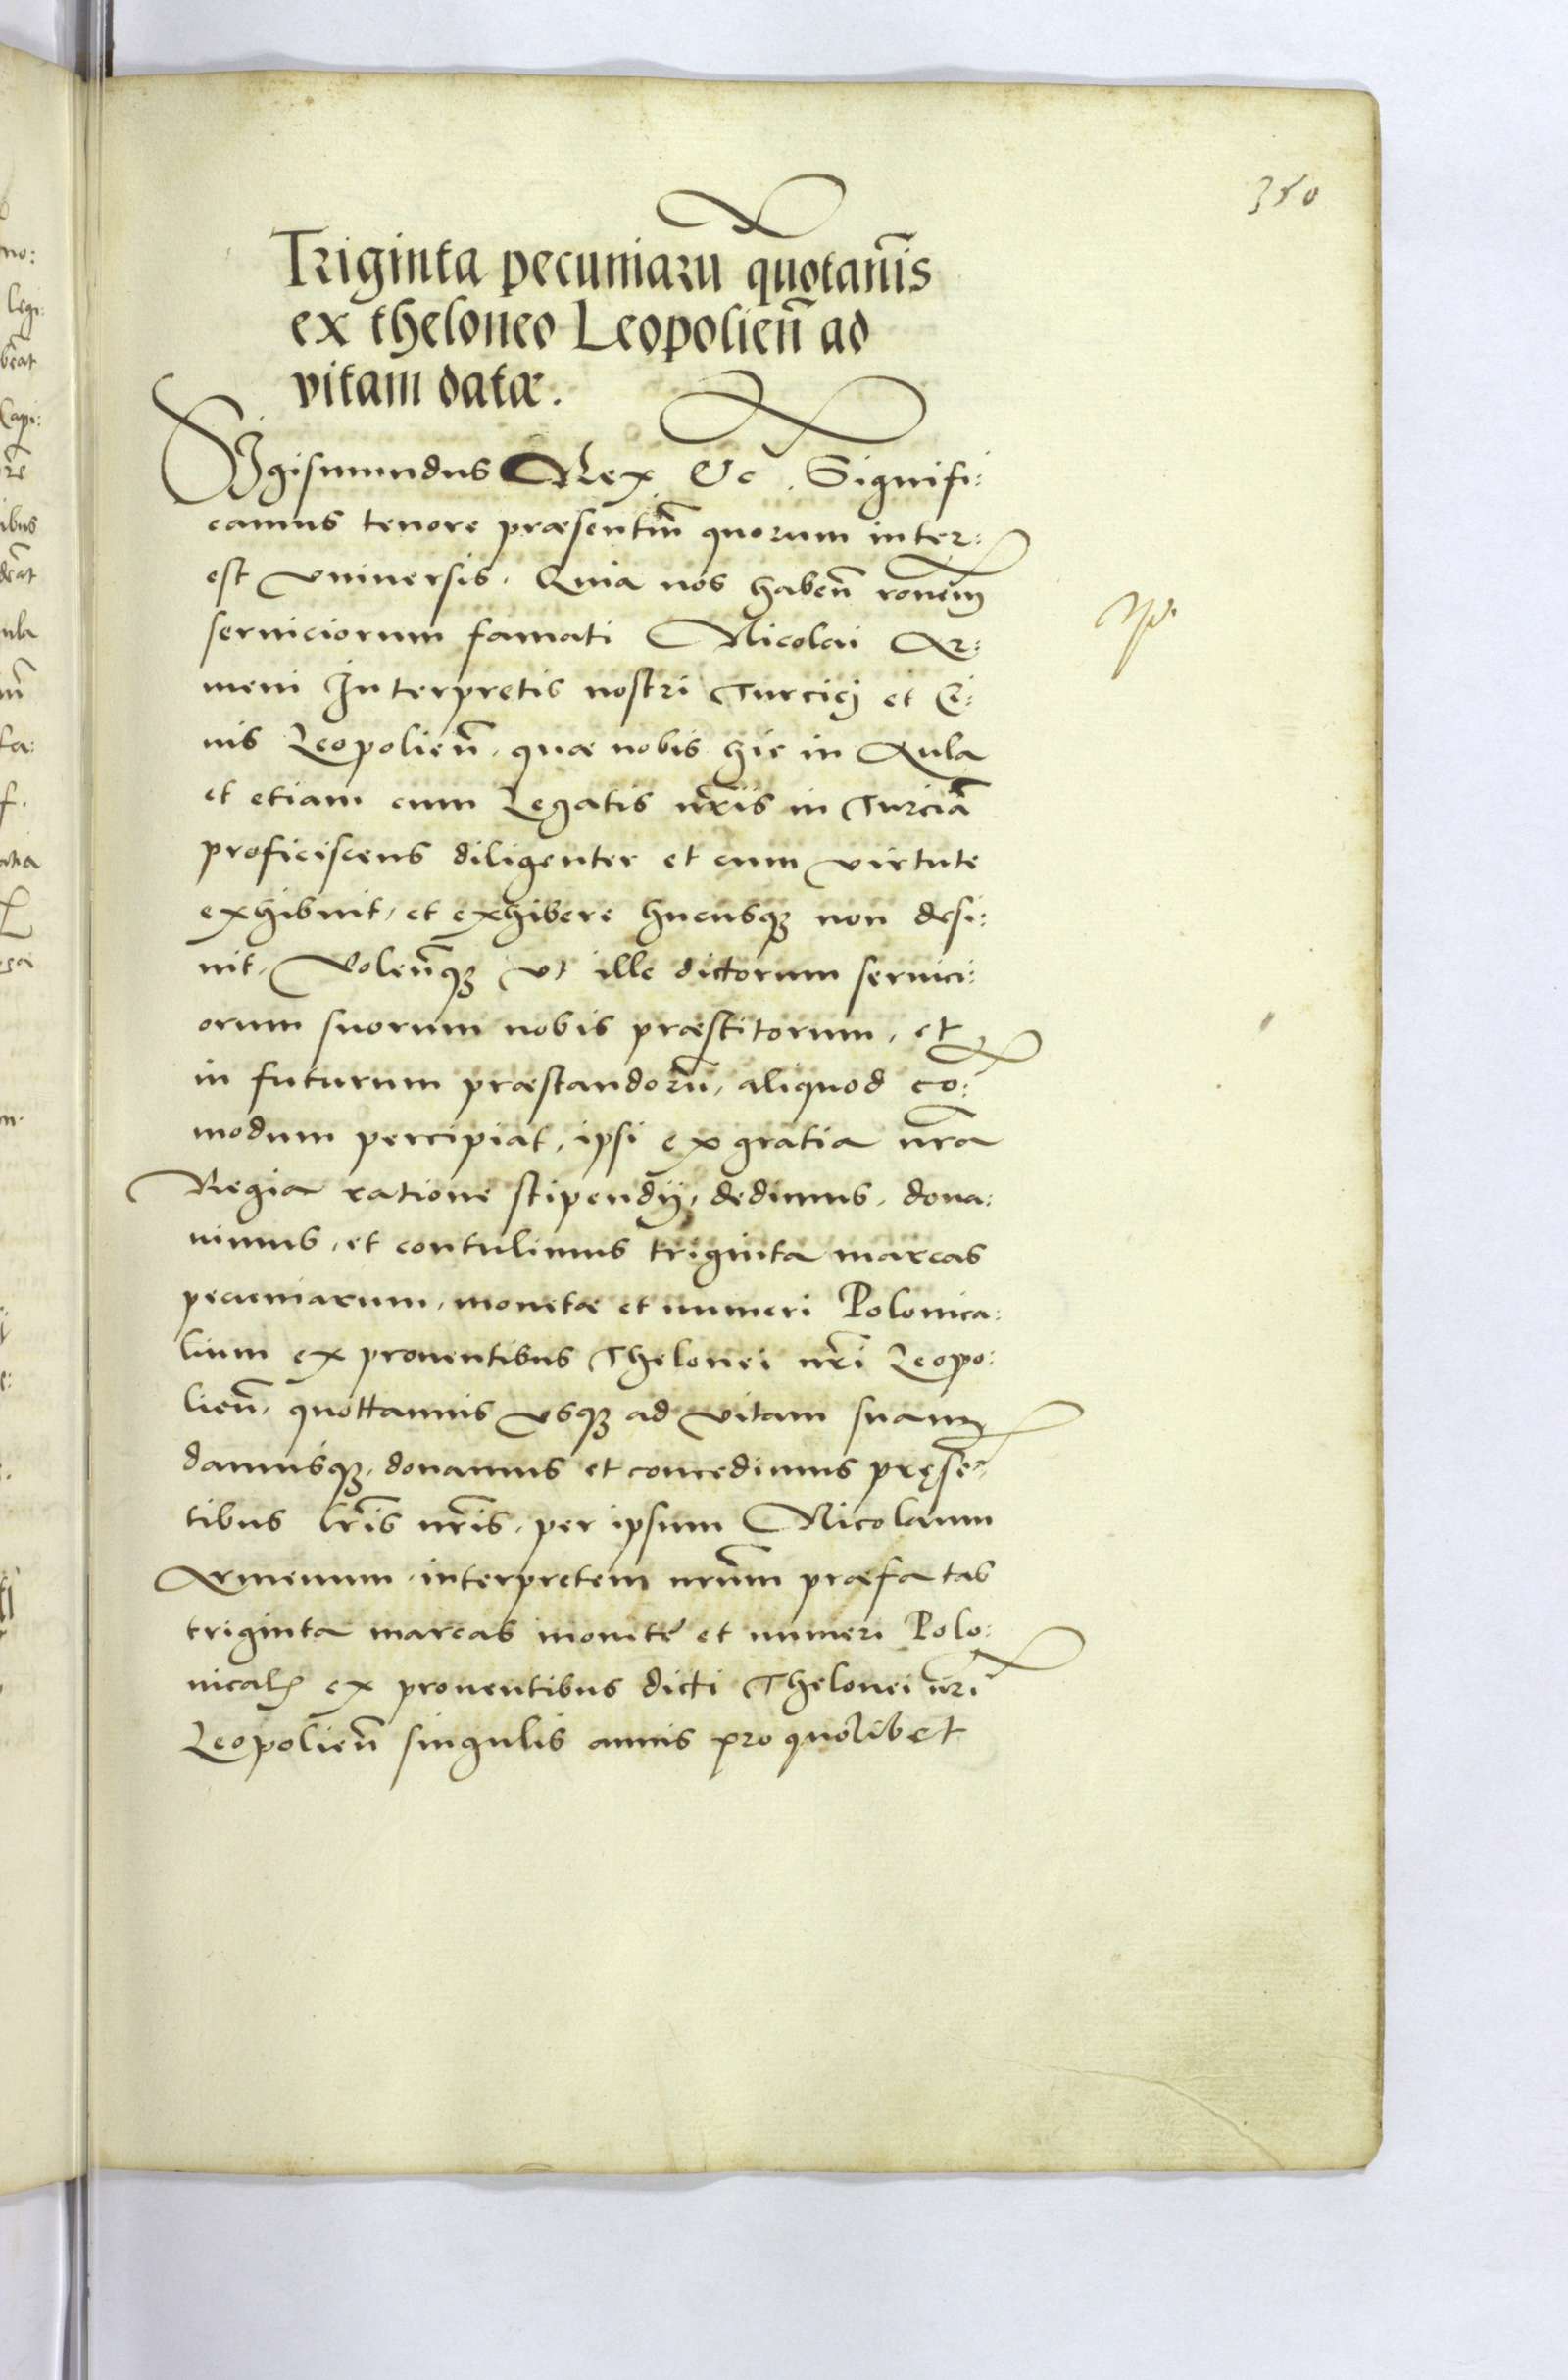 Triginta pecuniarū quotan̄is
ex theloneo Leopolien̄ ad
vitam datæ.
Sigismundus Rex &c. Signifi:
camus tenore præsentiū quorum inter:
est vniuersis. Quia nos haben̄ ronem̄
seruiciorum famati Nicolai Ar:
meni Interpretis nostri Turcicj et Ci:
uis Leopolien̄, quæ nobis hic in Aula
et etiam cum Legatis nr̄is in Turciā
proficiscens diligenter et cum virtute
exhibuit, et exhibere hucusqꝫ non desi:
nit, Volen̄qꝫ vt ille dictorum seruici:
orum suorum nobis præstitorum, et
in futurum præstandorū, aliquod co:
modum percipiat, ipsi ex gratia nr̄a
Regia ratione stipendij, dedimus, dona:
uimus, et contulimus triginta marcas
pecuniarum, monetæ et numeri Polonica:
lium ex prouentibus Thelonei nr̄i Leopo:
lien̄, quottannis vsqꝫ ad vitam suam
damusqꝫ, donamus et concedimus pręsē:
tibus lr̄is nr̄is, per ipsum Nicolaum
Armenum interpretem nr̄um præfatas
triginta marcas monetę et numeri Polo:
nicalꝭ ex prouentibus dicti Thelonei nr̄i
Leopolien̄ singulis annis pro quolibet